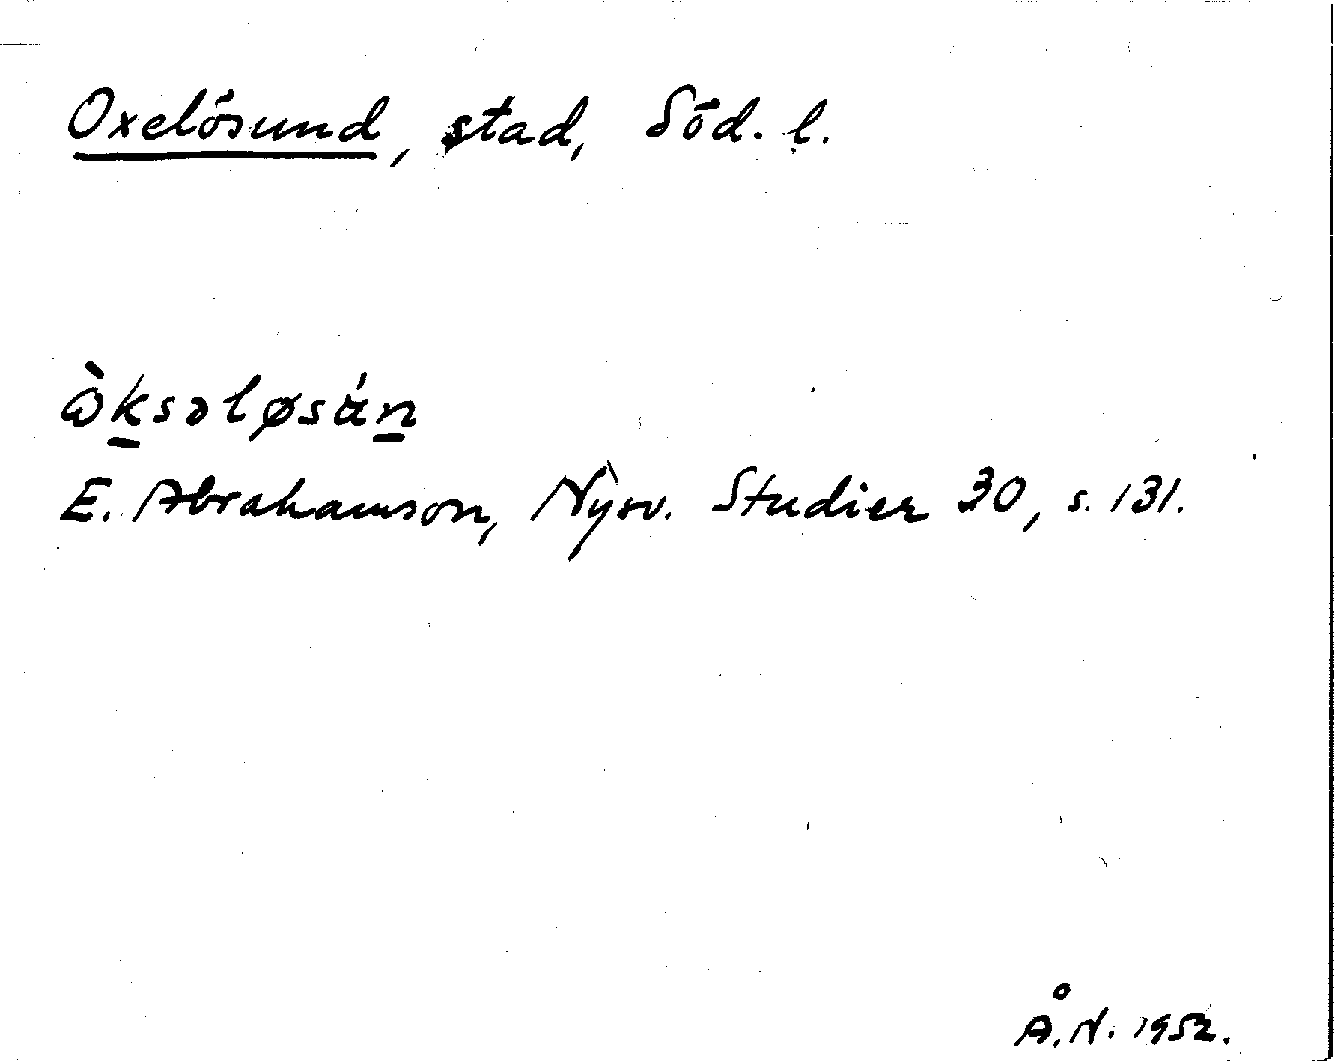 Oxelösund, stad, Söd. l.
ὼksəløsán
E. Abrahamson, Nysv. Studier 30, s. 131.
Å. N. 1952.